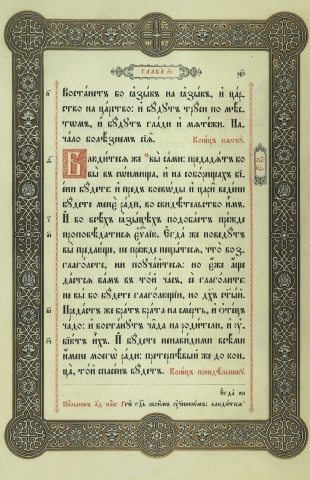 ГЛАВА
Востанетъ бо ꙗзыкъ на ꙗзыкъ, и цар
ство на царство: и будутъ труси по мѣ
стомъ, и будутъ глади и мѧтежи. На
чало болѣзнемъ сіѧ. Конецъ пѧтку.
Блюдитесѧ же вы сами: предадѧтъ бо
вы въ сонмища, и на соборищахъ бі
ени будете: и пред воеводы и цари ведени
будете мене ради, во свидѣтельство имъ.
И во всѣхъ ꙗзыцѣхъ подобаетъ прежде
проповѣдатисѧ еѵⷢ҇лію. Егда же поведутъ
вы предающе, не прежде пецытесѧ, что воз
глаголете, ни поучайтесѧ: но еже аще
дастсѧ вамъ въ той часъ, се глаголите:
не вы бо будете глаголющіи, но дх҃ъ ст҃ый.
Предастъ же братъ брата на смерть, и отецъ
чадо: и востанутъ чада на родители, и оу
біютъ ихъ. И будете ненавидими всѣми
имене моегѡ ради: претерпѣвый же до кон
ца, той спасенъ будетъ. Конецъ понедѣльнику.
Егда же